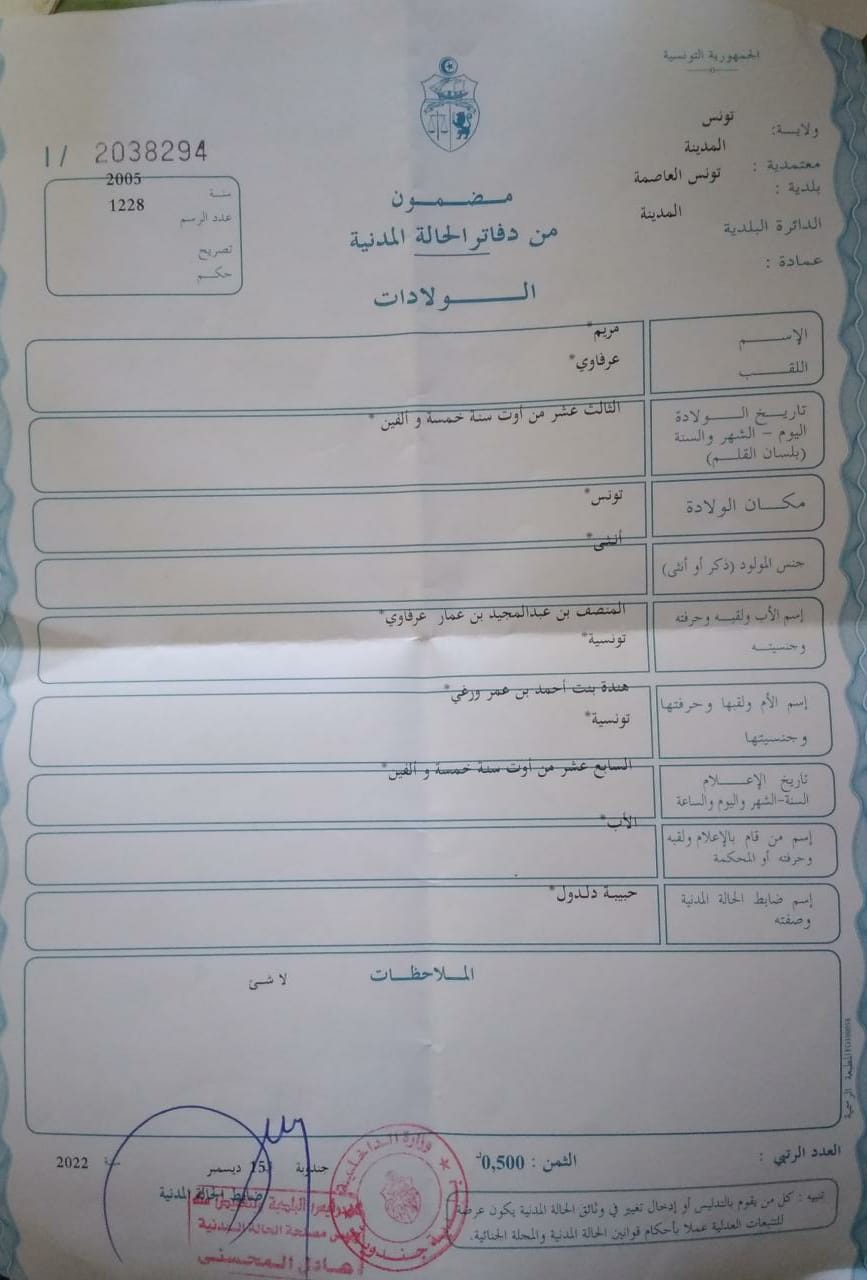 الجمهورية التونسية
ولاية: تونس
معتمدية : المدينة
بلدية : تونس العاصمة
الدائرة البلدية المدينة
عمادة :
I/ 2038294
سنة 2005
عدد الرسم 1228
تصريح
حكم
مضمون
من دفاتر الحالة المدنية
الولادات
الإسم مريم*
اللقب عرفاوي*
تاريخ الولادة الثالث عشر من أوت سنة خمسة و ألفين *
اليوم - الشهر والسنة
(بلسان القلم)
مكان الولادة تونس*
جنس المولود (ذكر أو أنثى) أنثى*
إسم الأب ولقبه وحرفته المنصف بن عبدالمجيد بن عمار عرفاوي*
وجنسيته تونسية*
إسم الأم ولقبها وحرفتها هندة بنت أحمد بن عمر ورغي*
وجنسيتها تونسية*
تاريخ الإعلام السابع عشر من أوت سنة خمسة و ألفين*
السنة-الشهر واليوم والساعة
إسم من قام بالإعلام ولقبه الأب*
وحرفته أو المحكمة
إسم ضابط الحالة المدنية حبيبة دلدول*
وصفته
الملاحظات
لا شئ
العدد الرتبي :
الثمن : 0,500د
جندوبة 15 ديسمبر سنة 2022
ضابط الحالة المدنية
تنبيه : كل من يقوم بالتدليس أو إدخال تغيير في وثائق الحالة المدنية يكون عرضة
للتتبعات العدلية عملا بأحكام قوانين الحالة المدنية والمجلة الجنائية.
وزارة الداخلية
جندوبة
رئيس مصلحة الحالة المدنية
عادل المحسني
المطبعة الرسمية